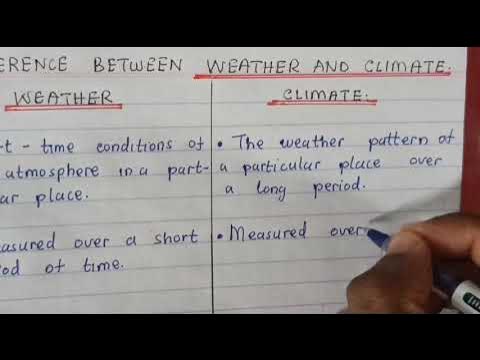 ERENCE BETWEEN WEATHER AND CLIMATE:
WEATHER
-t-time conditions of
atmosphere in a part-
ar place.
easured over a short
od of time.
CLIMATE:
• The weather pattern of
a particular place over
a long period.
• Measured over